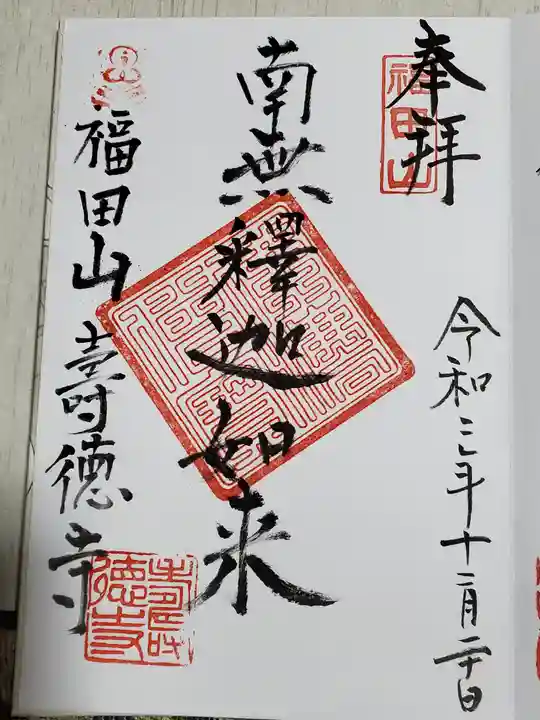 奉拝
福田山
令和三年十二月二十日
南無釋迦如来
福田山壽徳寺